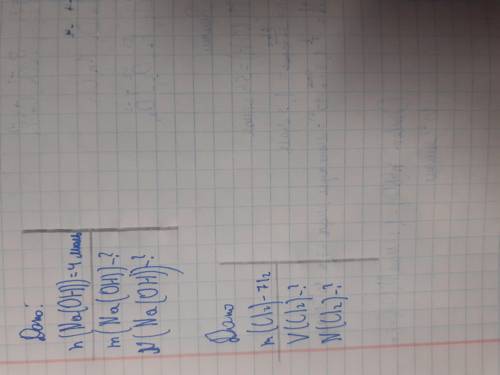 Дано:
n(Na(OH))=4 моль
m(Na(OH))-?
N(Na(OH))-?
Дано
(Cl₂)-71г
V(Cl₂)-?
N(Cl₂)-?